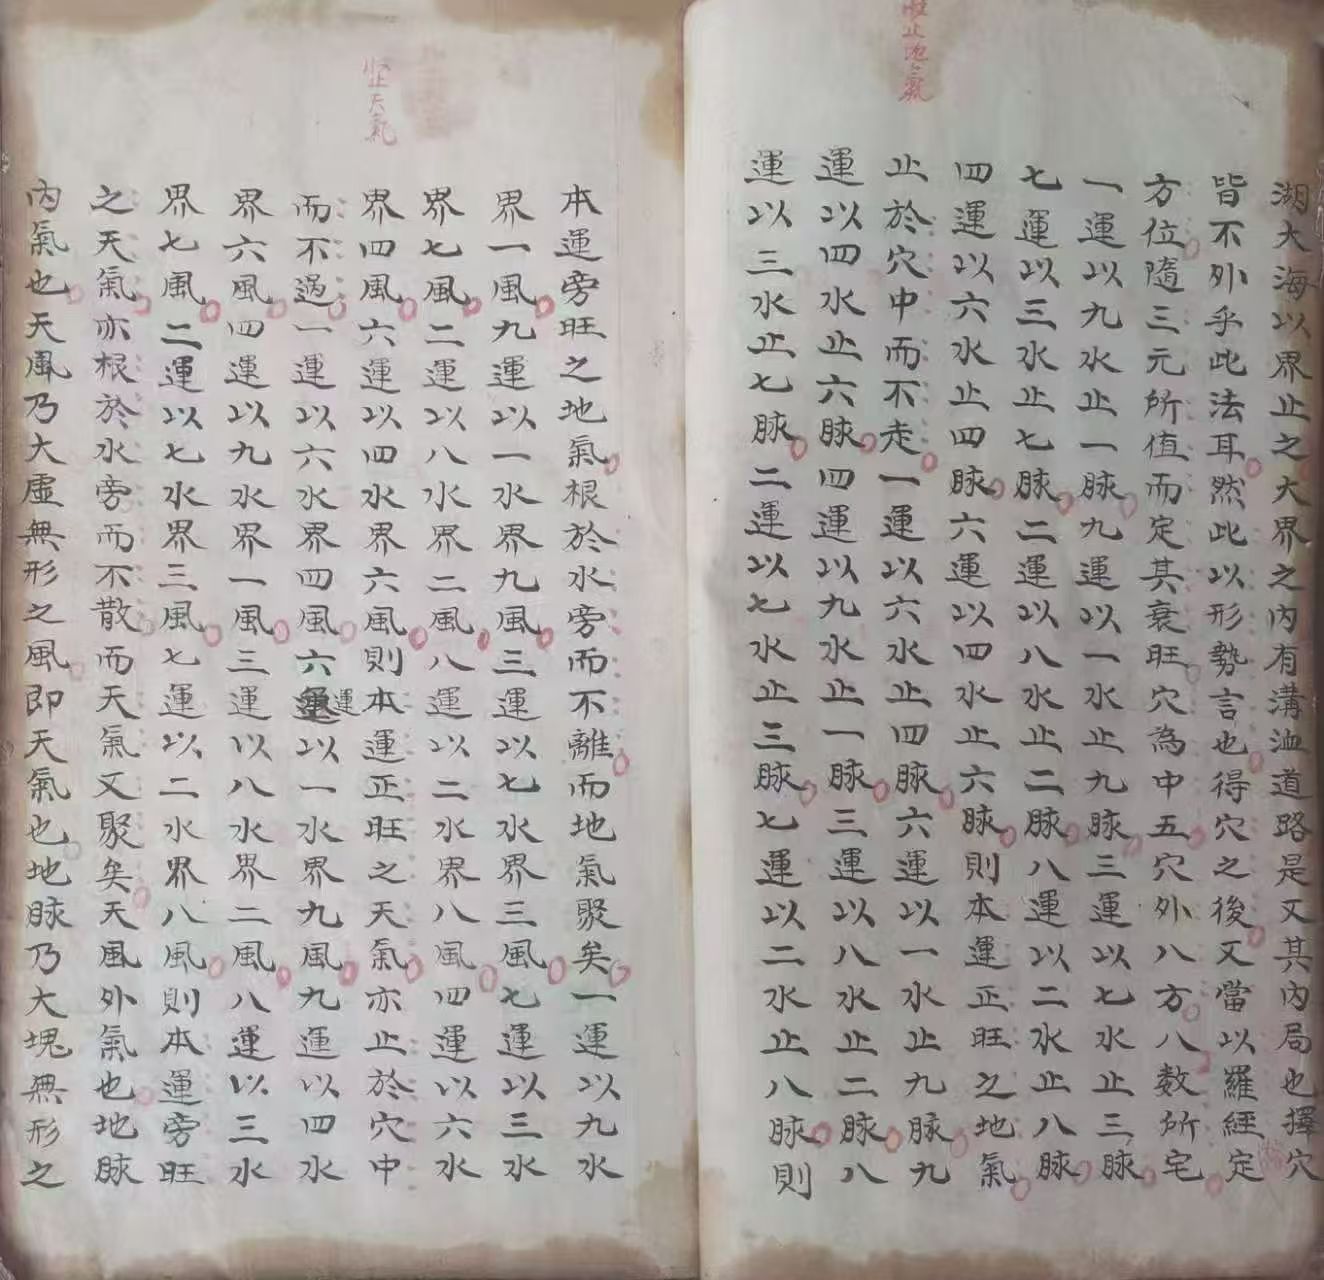 止地氣
湖大海以界止之大界之内有溝洫道路是又其内局也擇穴
皆不外乎此法耳然此以形勢言也得穴之後又當以羅經定
方位隨三元所值而定其衰旺穴為中五穴外八方八数所宅
一運以九水止一脉九運以一水止九脉三運以七水止三脉
七運以三水止七脉二運以八水止二脉八運以二水止八脉
四運以六水止四脉六運以四水止六脉則本運正旺之地氣
止於穴中而不走一運以六水止四脉六運以一水止九脉九
運以四水止六脉四運以九水止一脉三運以八水止二脉八
運以三水止七脉二運以七水止三脉七運以二水止八脉則
止天氣
本運旁旺之地氣根於水旁而不離而地氣聚矣一運以九水
界一風九運以一水界九風三運以七水界三風七運以三水
界七風二運以八水界二風八運以二水界八風四運以六水
界四風六運以四水界六風則本運正旺之天氣亦止於穴中
而不過一運以六水界四風六運以一水界九風九運以四水
界六風四運以九水界一風三運以八水界二風八運以三水
界七風二運以七水界三風七運以二水界八風則本運旁旺
之天氣亦根於水旁而不散而天氣又聚矣天風外氣也地脉
内氣也天風乃大虛無形之風即天氣也地脉乃大塊無形之